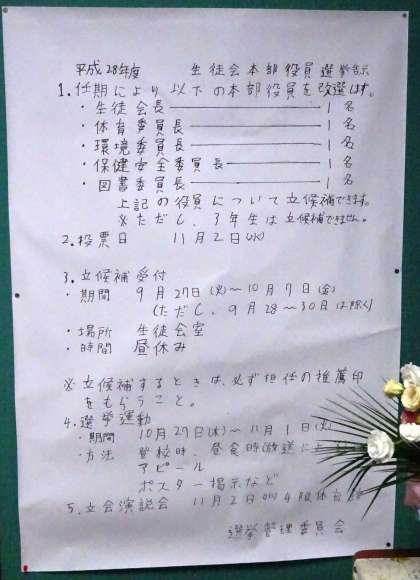 平成28年度 生徒会本部役員選挙告示
1. 任期により以下の本部役員を改選します。
・生徒会長 1名
・体育委員長 1名
・環境委員長 1名
・保健安全委員長 1名
・図書委員長 1名
上記の役員について立候補できます。
※ただし、3年生は立候補できません。
2. 投票日 11月2日(水)
3. 立候補受付
・期間 9月27日(火)〜10月7日(金)
(ただし、9月28〜30日は除く)
・場所 生徒会室
・時間 昼休み
※立候補するときは、必ず担任の推薦印
をもらうこと。
4. 選挙運動
・期間 10月27日(木)〜11月1日(火)
・方法 登校時、昼食時(放送による
アピール
ポスター掲示など
5. 立会演説会 11月2日(水)4限体育館
選挙管理委員会